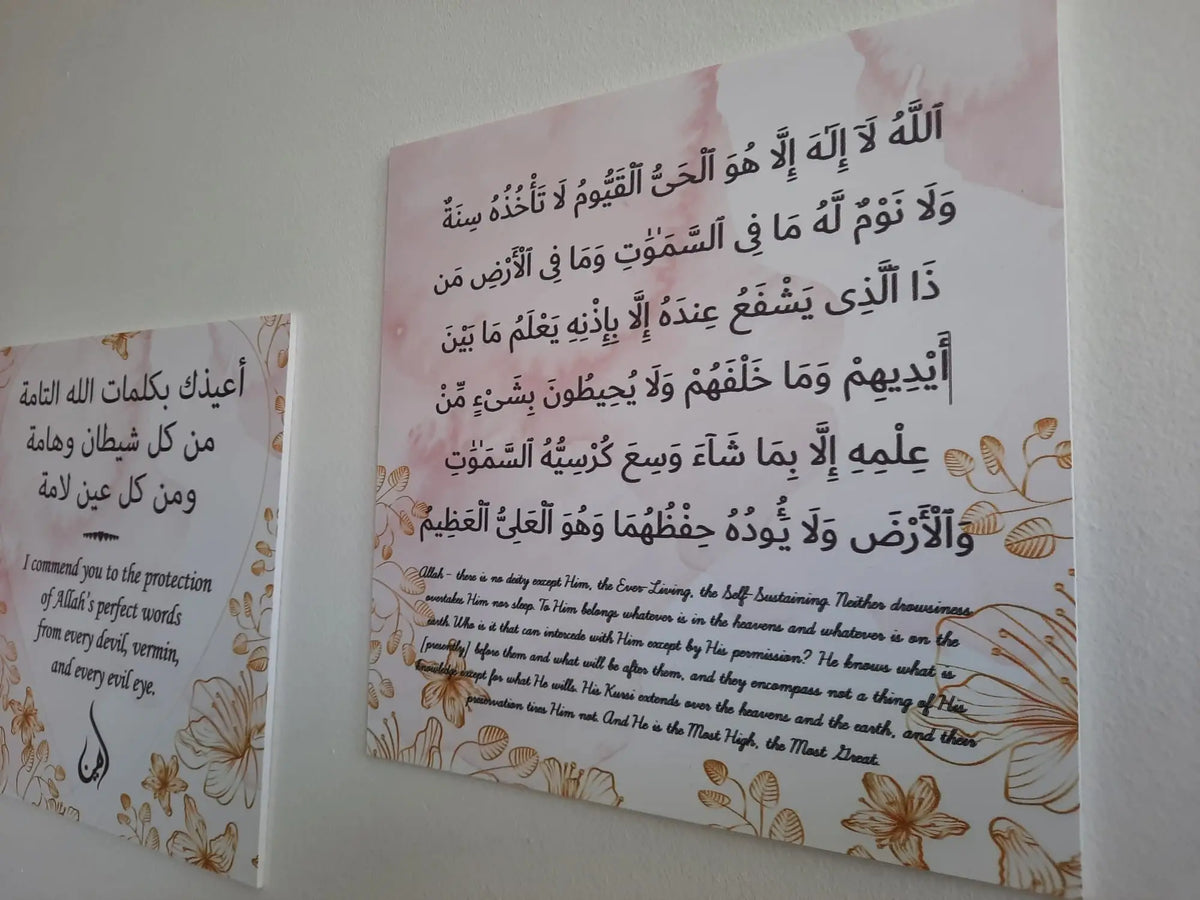 ٱللَّهُ لَآ إِلَٰهَ إِلَّا هُوَ ٱلْحَىُّ ٱلْقَيُّومُ لَا تَأْخُذُهُ سِنَةٌ
وَلَا نَوْمٌ لَّهُ مَا فِى ٱلسَّمَٰوَٰتِ وَمَا فِى ٱلْأَرْضِ مَن
ذَا ٱلَّذِى يَشْفَعُ عِندَهُ إِلَّا بِإِذْنِهِ يَعْلَمُ مَا بَيْنَ
أَيْدِيهِمْ وَمَا خَلْفَهُمْ وَلَا يُحِيطُونَ بِشَىْءٍ مِّنْ
عِلْمِهِ إِلَّا بِمَا شَآءَ وَسِعَ كُرْسِيُّهُ ٱلسَّمَٰوَٰتِ
وَٱلْأَرْضَ وَلَا يَـُٔودُهُ حِفْظُهُمَا وَهُوَ ٱلْعَلِىُّ ٱلْعَظِيمُ
Allah - there is no deity except Him, the Ever-Living, the Self-Sustaining. Neither drowsiness
overtakes Him nor sleep. To Him belongs whatever is in the heavens and whatever is on the
earth. Who is it that can intercede with Him except by His permission? He knows what is
[presently] before them and what will be after them, and they encompass not a thing of His
knowledge except for what He wills. His Kursi extends over the heavens and the earth, and their
preservation tires Him not. And He is the Most High, the Most Great.
أعيذك بكلمات الله التامة
من كل شيطان وهامة
ومن كل عين لامة
I commend you to the protection
of Allah's perfect words
from every devil, vermin,
and every evil eye.
آمين